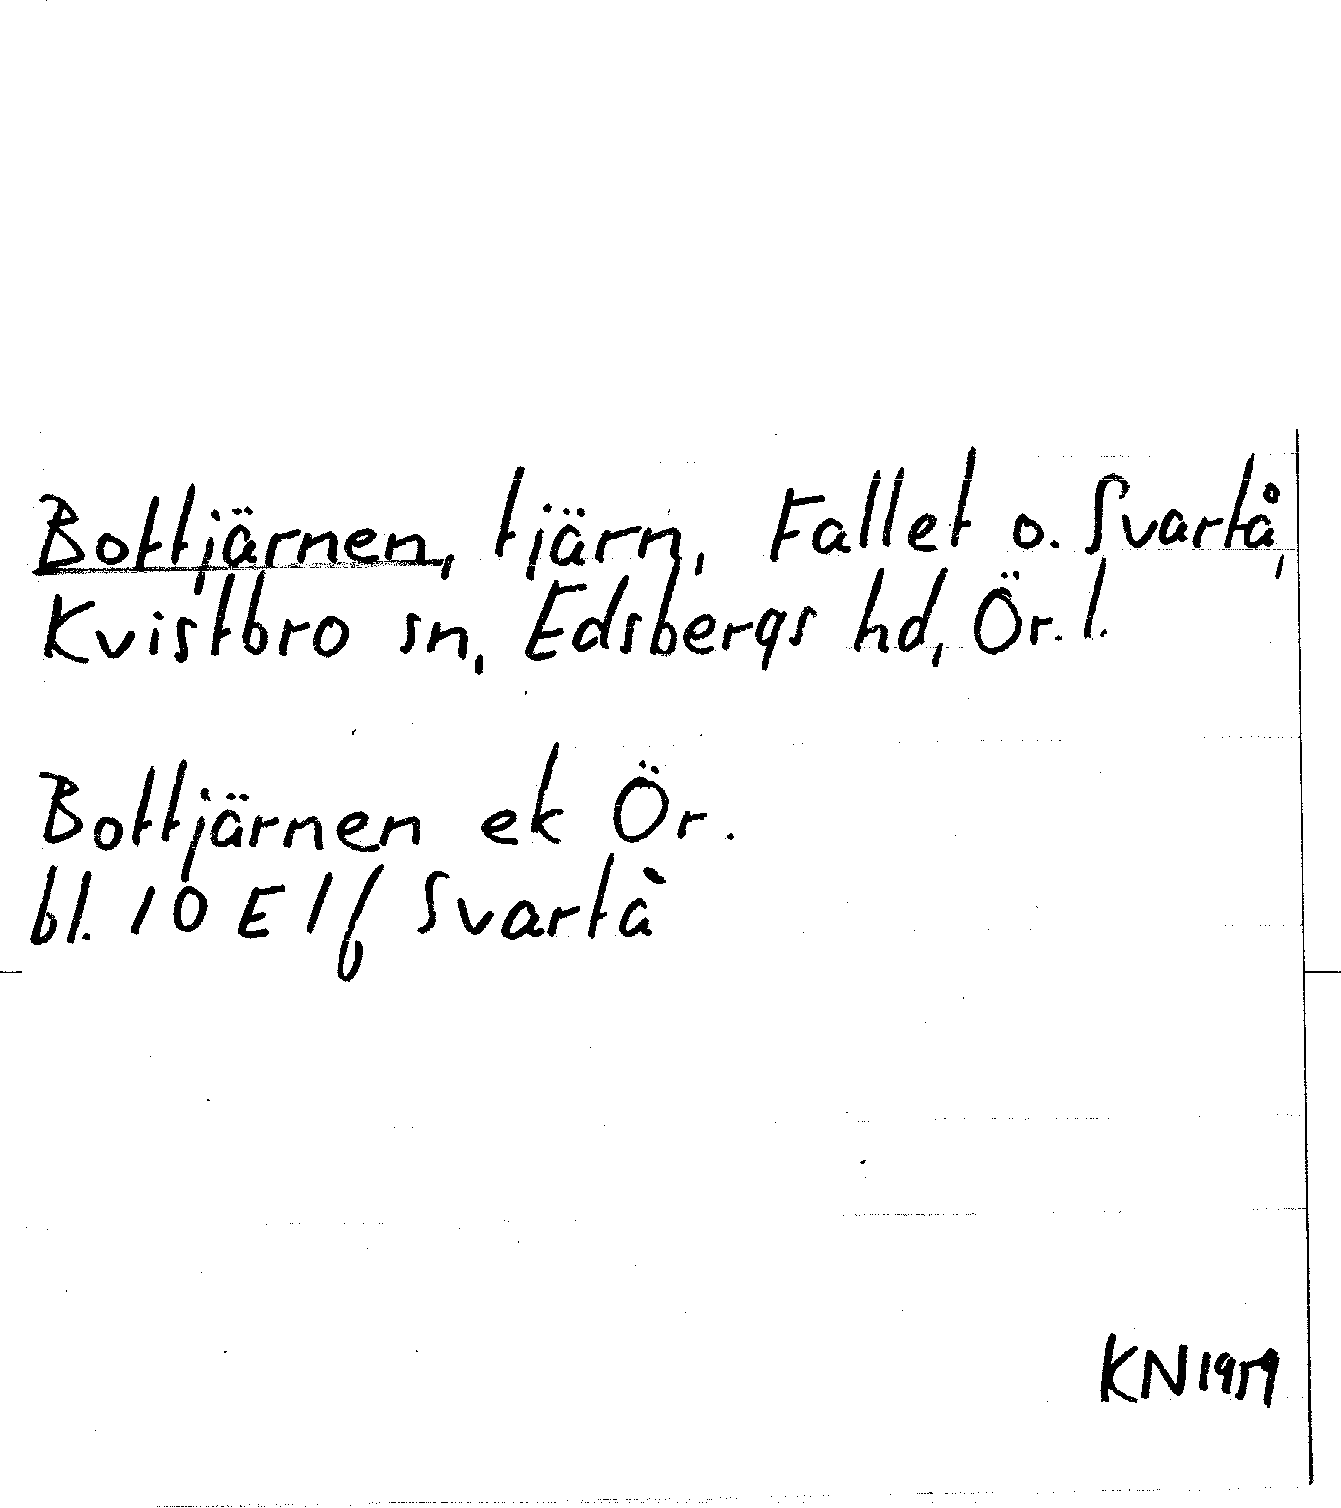 Bottjärnen, tjärn, Fallet o. Svartå,
Kvistbro sn, Edsbergs hd, Ör. l.
Bottjärnen ek Ör.
bl. 10 E 1 f Svartå
KN 1959